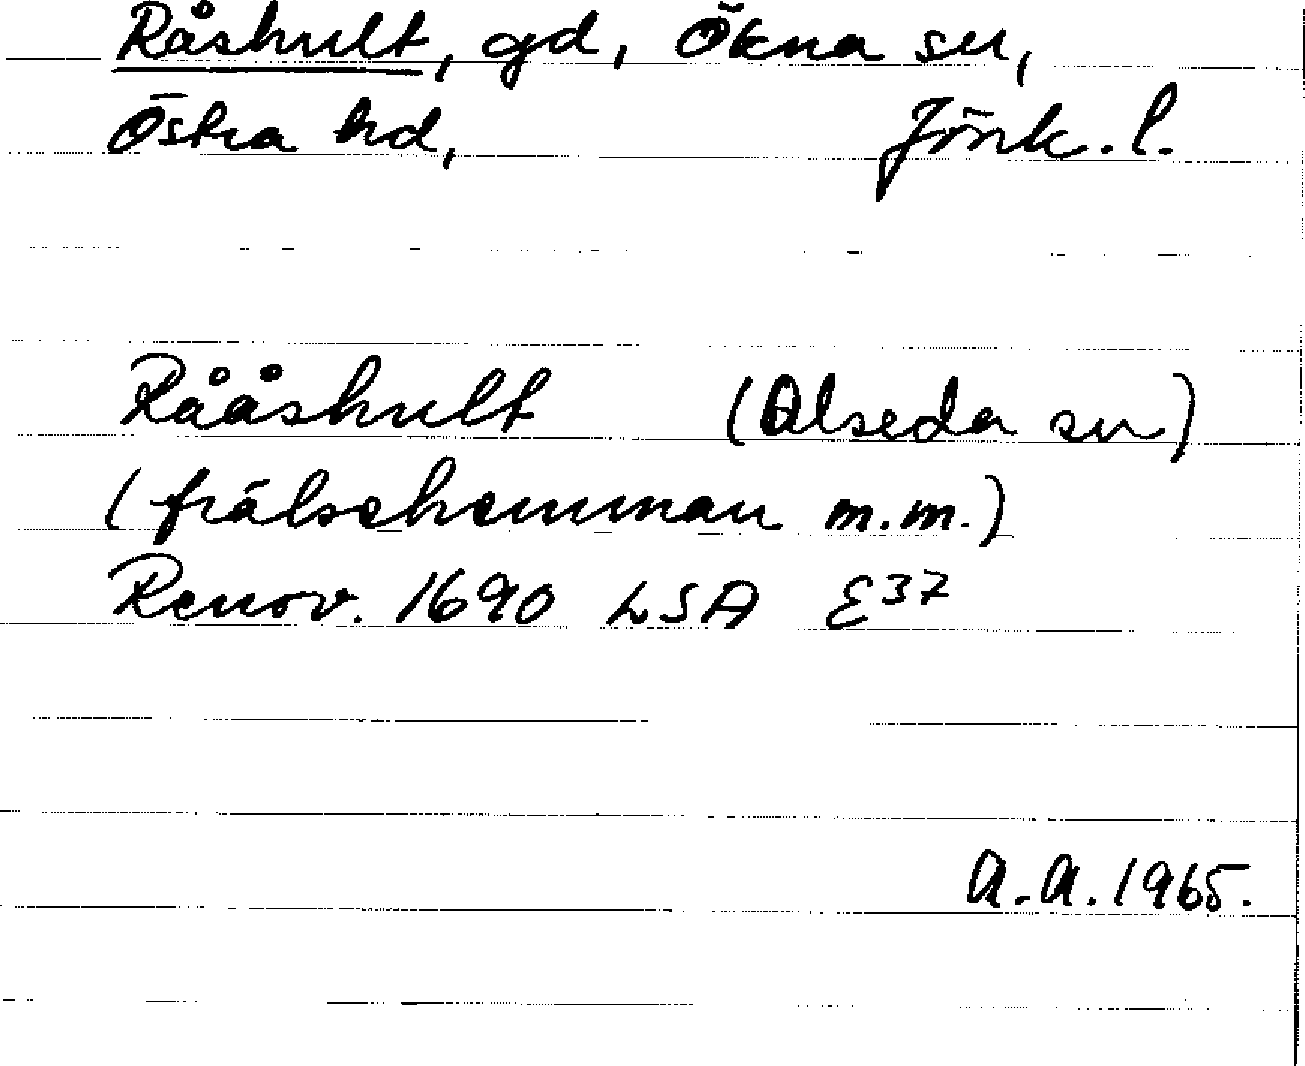 Råshult, gd, Ökna sn,
Östra hd, Jönk. l.
Rååshult (Alseda sn)
(frälsehemman m.m.)
Renov. 1690 LSA E37
A.A. 1965.